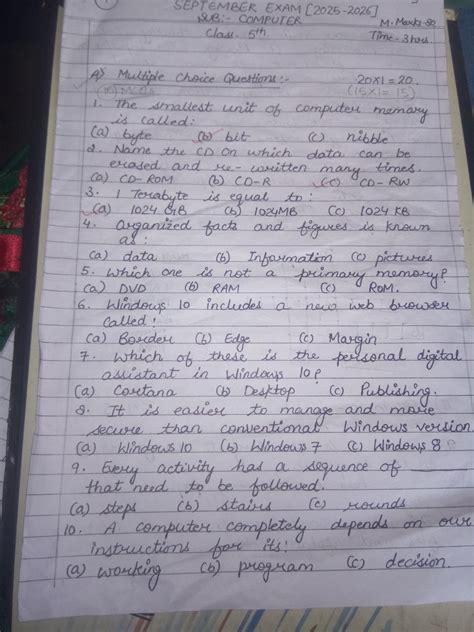 SEPTEMBER EXAM [2025-2026]
SUB:- COMPUTER
M. Marks-50
Class- 5th.
Time-3hrs.
A) Multiple Choice Questions:-
20x1=20.
(10) MCQs
(15x1=15)
1. The smallest unit of computer memory
is called:
(a) byte (b) bit (c) nibble
2. Name the CD on which data can be
erased and re-written many times.
(a) CD-ROM (b) CD-R (c) CD-RW
3. 1 Terabyte is equal to:
(a) 1024 GB (b) 1024MB (c) 1024 KB
4. Organized facts and figures is known
as:
(a) data (b) Information (c) pictures
5. Which one is not a primary memory?
(a) DVD (b) RAM (c) ROM.
6. Windows 10 includes a new web browser
called:
(a) Border (b) Edge (c) Margin
7. Which of these is the personal digital
assistant in Windows 10?
(a) Cortana (b) Desktop (c) Publishing.
8. It is easier to manage and more
secure than conventional Windows version
(a) Windows 10 (b) Windows 7 (c) Windows 8
9. Every activity has a sequence of ____
that need to be followed.
(a) steps (b) stairs (c) rounds
10. A computer completely depends on our
instructions for its:
(a) working (b) program (c) decision.